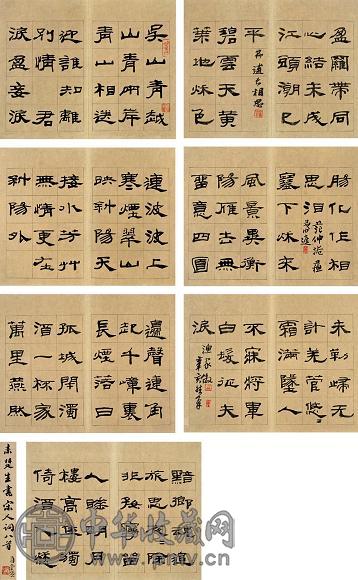 吳山青越
山青兩岸
青山相送
迎誰知離
別情君
淚盈妾淚
盈羅帶同
心結未成
江頭潮已
平
長相思
碧雲天黃
葉地秌色
連波波上
寒煙翠山
映斜陽天
接水芳艸
無情更在
斜陽外
化作相
思淚
范仲淹蘇
幕遮
塞下秌來
風景異衡
陽雁去無
留意四面
邊聲連角
起千嶂裏
長煙落日
孤城閉濁
酒一杯家
萬里燕然
未勒歸無
計羌管悠
霜滿地人
不寐將軍
白髮征夫
淚
漁家傲
黯鄉魂追
人睡明月
樓高休獨
倚酒入愁
来楚生書宋人词八首
中华收藏网